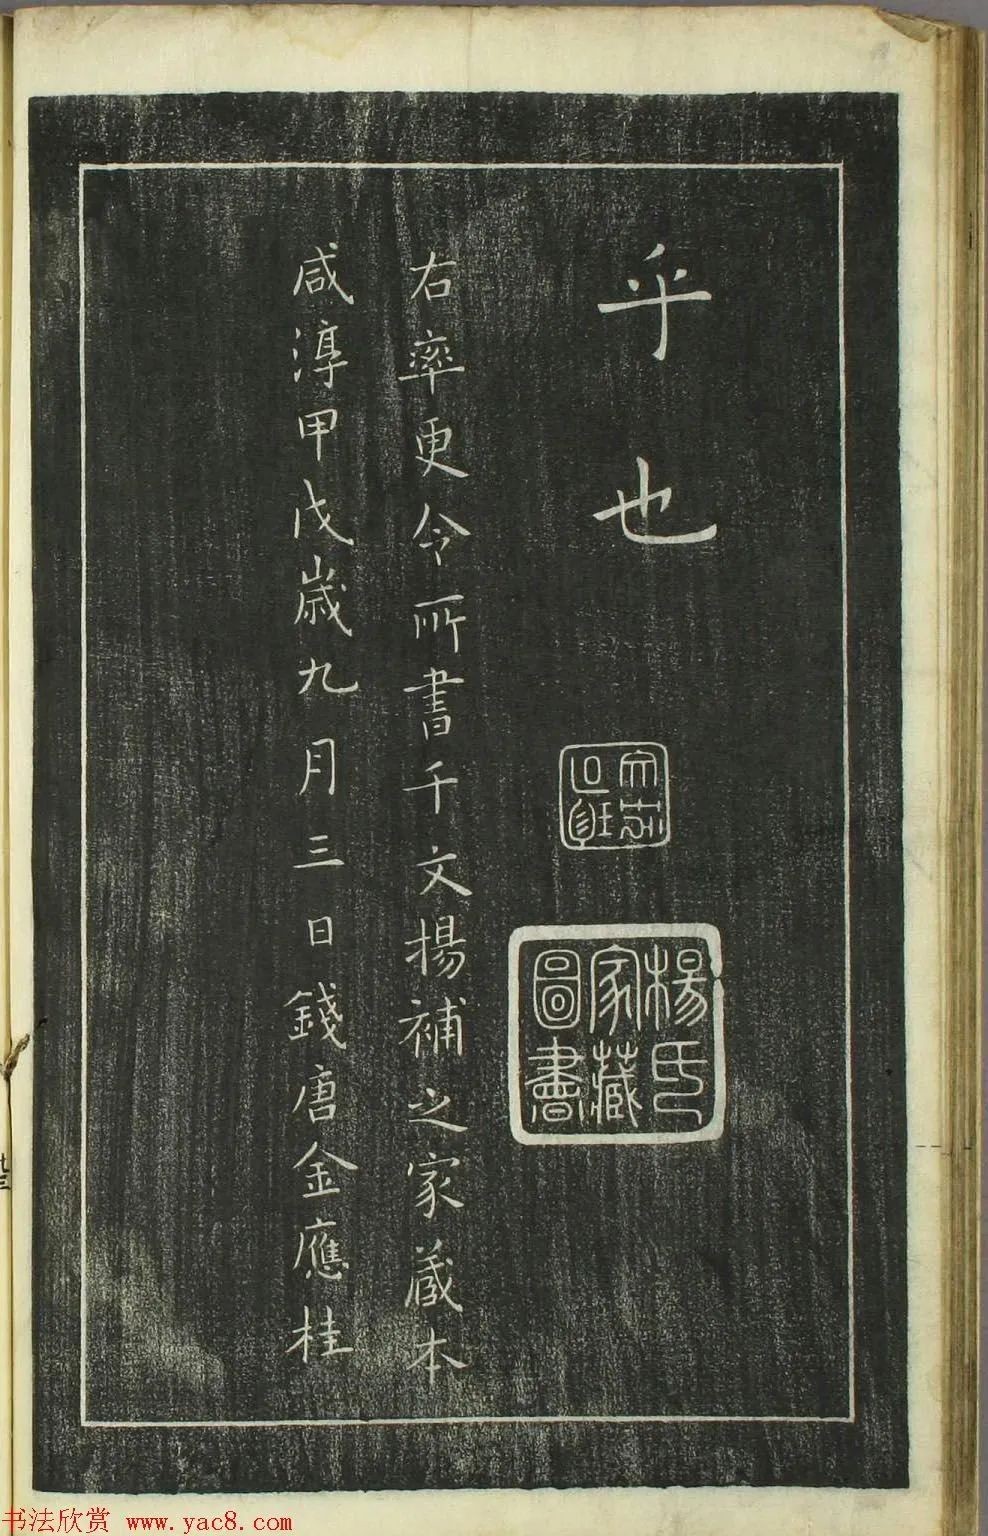 乎也
楊氏
家藏
圖書
右率更令所書千文楊補之家藏本
咸淳甲戌歲九月三日錢唐金應桂
书法欣赏 www.yac8.com